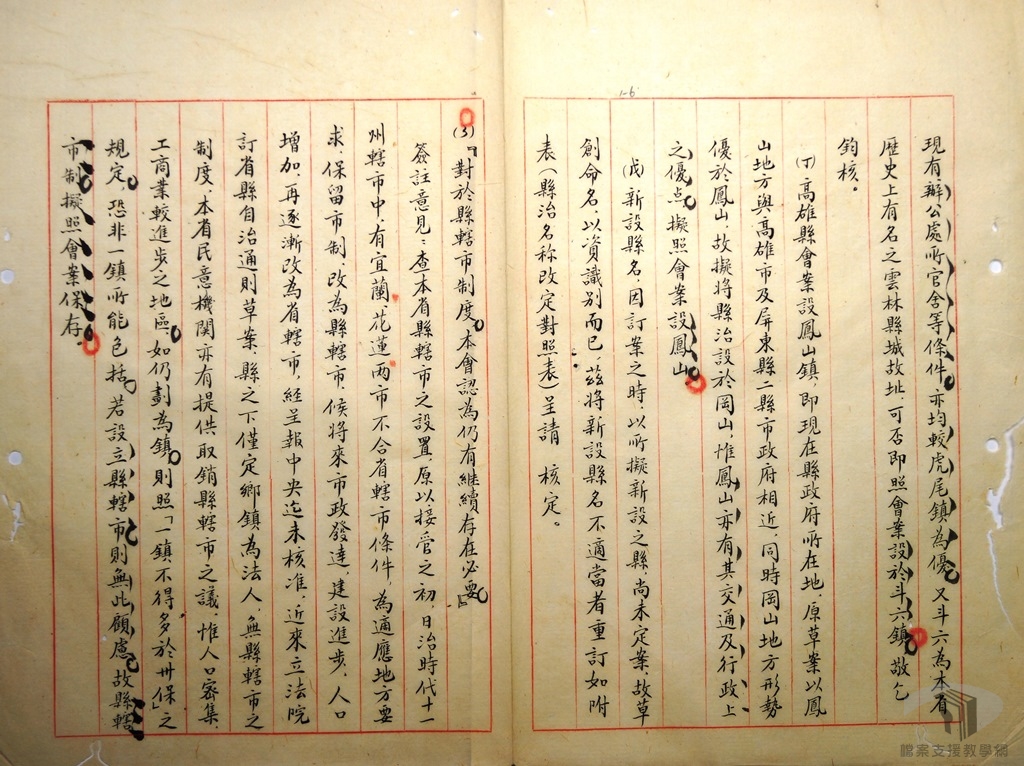 16
現有辦公處所官舍等條件亦均較虎尾鎮為優又斗六為本省
歷史上有名之雲林縣城故址可否即照會案設於斗六鎮敬乞
鈞核。
(丁)高雄縣會案設鳳山鎮,即現在縣政府所在地,原草案以鳳
山地方與高雄市及屏東縣二縣市政府相近,同時岡山地方形勢
優於鳳山,故擬將縣治設於岡山,惟鳳山亦有其交通及行政上
之優点擬照會案設鳳山
(戊)新設縣名,因訂案之時,以所擬新設之縣尚未定案,故草
創命名,以資識別而已,茲將新設縣名不適當者重訂如附
表(縣治名称改定對照表)呈請 核定。
(3)「對於縣轄市制度本會認為仍有繼續存在必要」
簽註意見:查本省縣轄市之設置,原以接管之初,日治時代十一
州轄市中,有宜蘭、花蓮兩市不合省轄市條件,為適應地方要
求,保留市制,改為縣轄市,候將來市政發達,建設進步,人口
增加,再逐漸改為省轄市,經呈報中央迄未核准,近來立法院
訂省縣自治通則草案,縣之下僅定鄉鎮為法人,無縣轄市之
制度,本省民意機関亦有提供取銷縣轄市之議,惟人口密集,
工商業較進步之地區,如仍劃為鎮,則照「一鎮不得多於卅保」之
規定,恐非一鎮所能包括,若設立縣轄市則無此顧慮,故縣轄
市制擬照會案保存.
檔案支援教學網